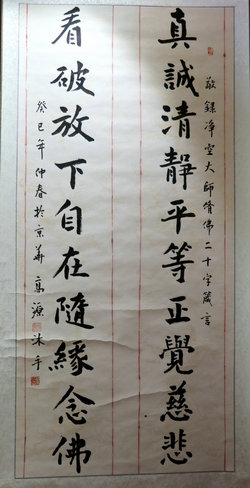 敬録淨空大師脩佛二十字箴言
真誠清靜平等正覺慈悲
看破放下自在隨緣念佛
癸巳年仲春於京華高源沐手